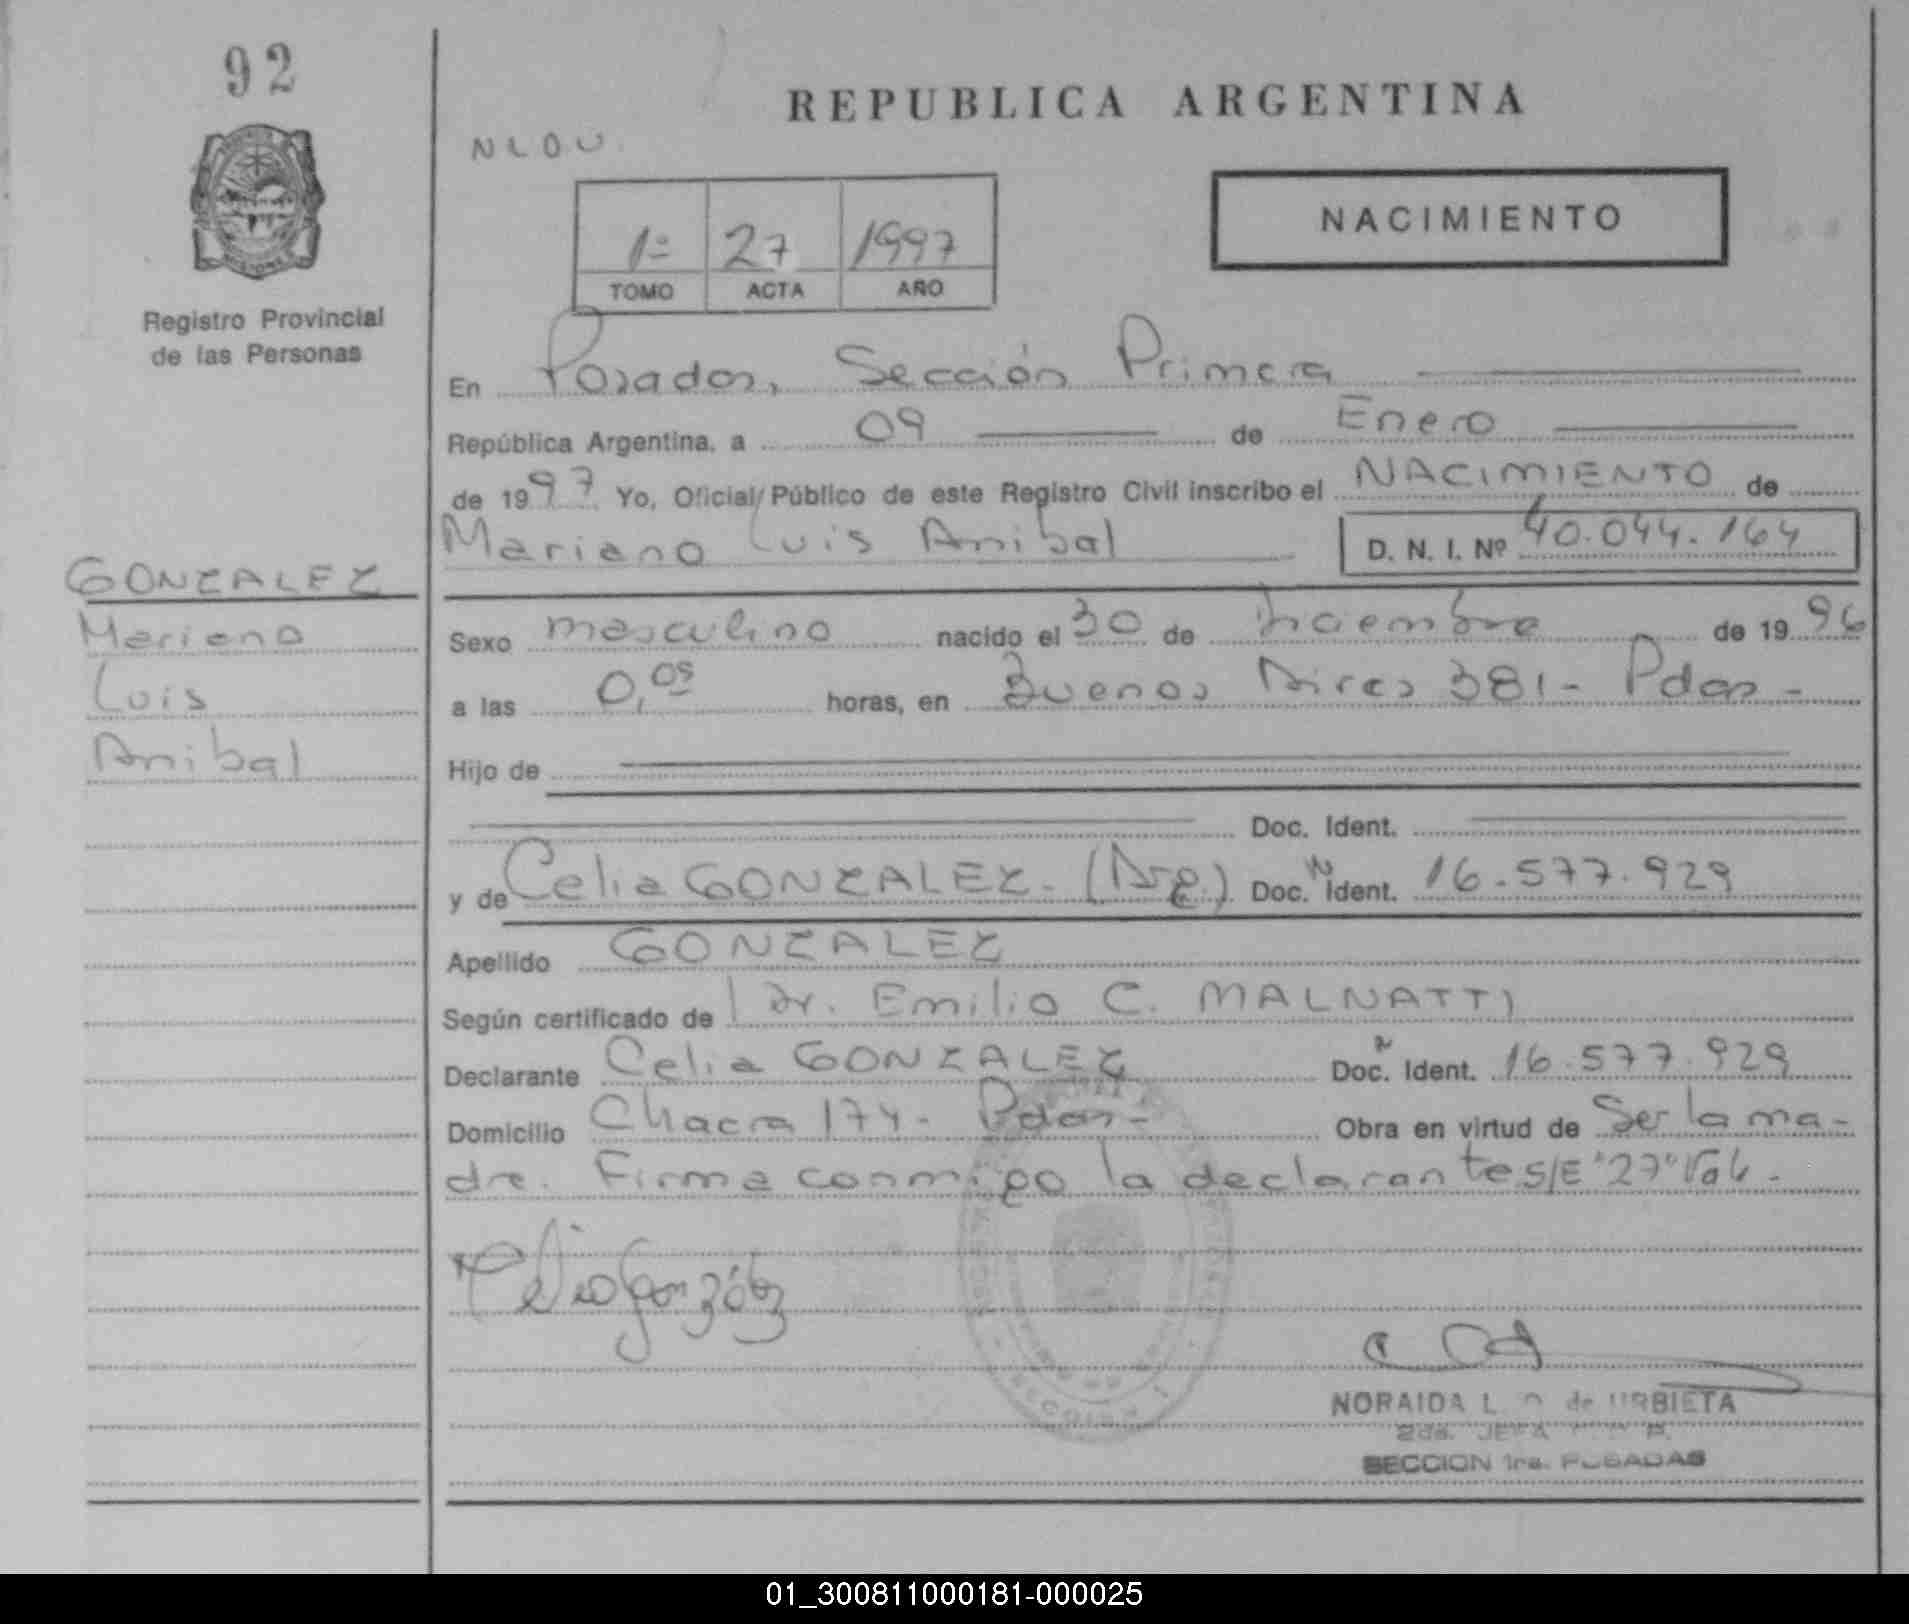 92
REPUBLICA ARGENTINA
NLOU.
NACIMIENTO
1º 27 1997
TOMO ACTA AÑO
Registro Provincial
de las Personas
En Posadas, Sección Primera
República Argentina, a 09 de Enero
de 1997 Yo, Oficial Público de este Registro Civil inscribo el NACIMIENTO de
Mariano Luis Anibal D. N. I. Nº 40.044.164
GONZALEZ
Mariano
Luis
Anibal
Sexo masculino nacido el 30 de Diciembre de 1996
a las 0,05 horas, en Buenos Aires 381- Pdas-
Hijo de
Doc. Ident.
y de Celia GONZALEZ- (Arg.) Doc. N Ident. 16.577.929
Apellido GONZALEZ
Según certificado de Dr. Emilio C. MALNATTI
Declarante Celia GONZALEZ Doc. N Ident. 16.577.929
Domicilio Chacra 174- Pdas- Obra en virtud de Ser la ma-
dre. Firma conmigo la declarante S/E "27" Vale-
Celia González
NORAIDA L. O. de URBIETA
2da. JEFA
SECCION 1ra. POSADAS
01_300811000181-000025